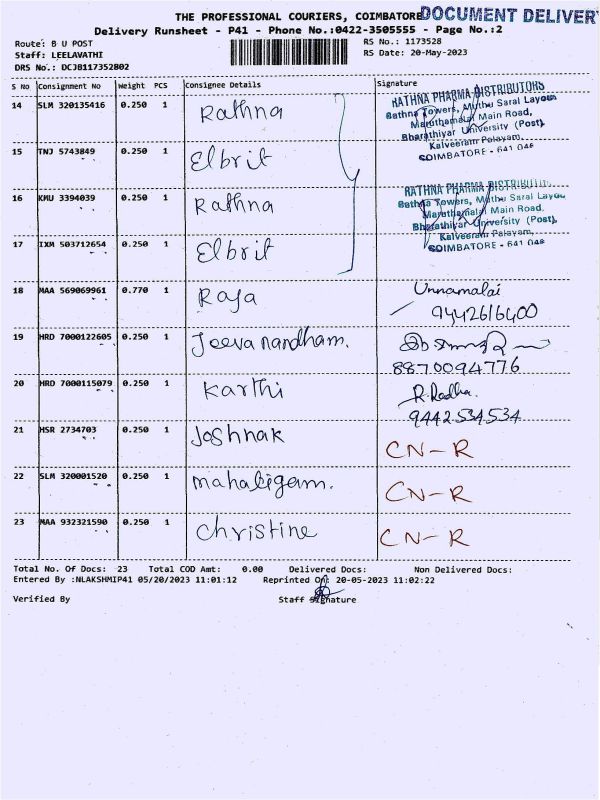 THE PROFESSIONAL COURIERS, COIMBATORE DOCUMENT DELIVER
Delivery Runsheet - P41 - Phone No.:0422-3505555 - Page No.:2
Route: B U POST RS No.: 1173528
Staff: LEELAVATHI RS Date: 20-May-2023
DRS No.: DCJB117352802
S No Consignment No Weight PCS Consignee Details Signature
14 SLM 320135416 0.250 1 Rathna
RATHNA PHARMA DISTRIBUTORS
Rathna Towers, Muthu Saral Layout
Maruthamalai Main Road,
Bharathiyar University (Post),
Kalveeram Palayam,
COIMBATORE - 641 046
15 TNJ 5743849 0.250 1 Elbrit
16 KMU 3394039 0.250 1 Rathna
RATHNA PHARMA DISTRIBUTORS
Rathna Towers, Muthu Saral Layout
Maruthamalai Main Road,
Bharathiyar University (Post),
Kalveeram Palayam,
COIMBATORE - 641 046
17 IXM 503712654 0.250 1 Elbrit
18 MAA 569069961 0.770 1 Raja Unnamalai
9442616400
19 HRD 7000122605 0.250 1 Jeevanandham.
8870094776
20 HRD 7000115079 0.250 1 Karthi R. Radha.
9442534534
21 HSR 2734703 0.250 1 Joshnak CN-R
22 SLM 320001520 0.250 1 mahaligam. CN-R
23 MAA 932321590 0.250 1 Christine CN-R
Total No. Of Docs: 23 Total COD Amt: 0.00 Delivered Docs: Non Delivered Docs:
Entered By :NLAKSHMIP41 05/20/2023 11:01:12 Reprinted On: 20-05-2023 11:02:22
Verified By Staff Signature